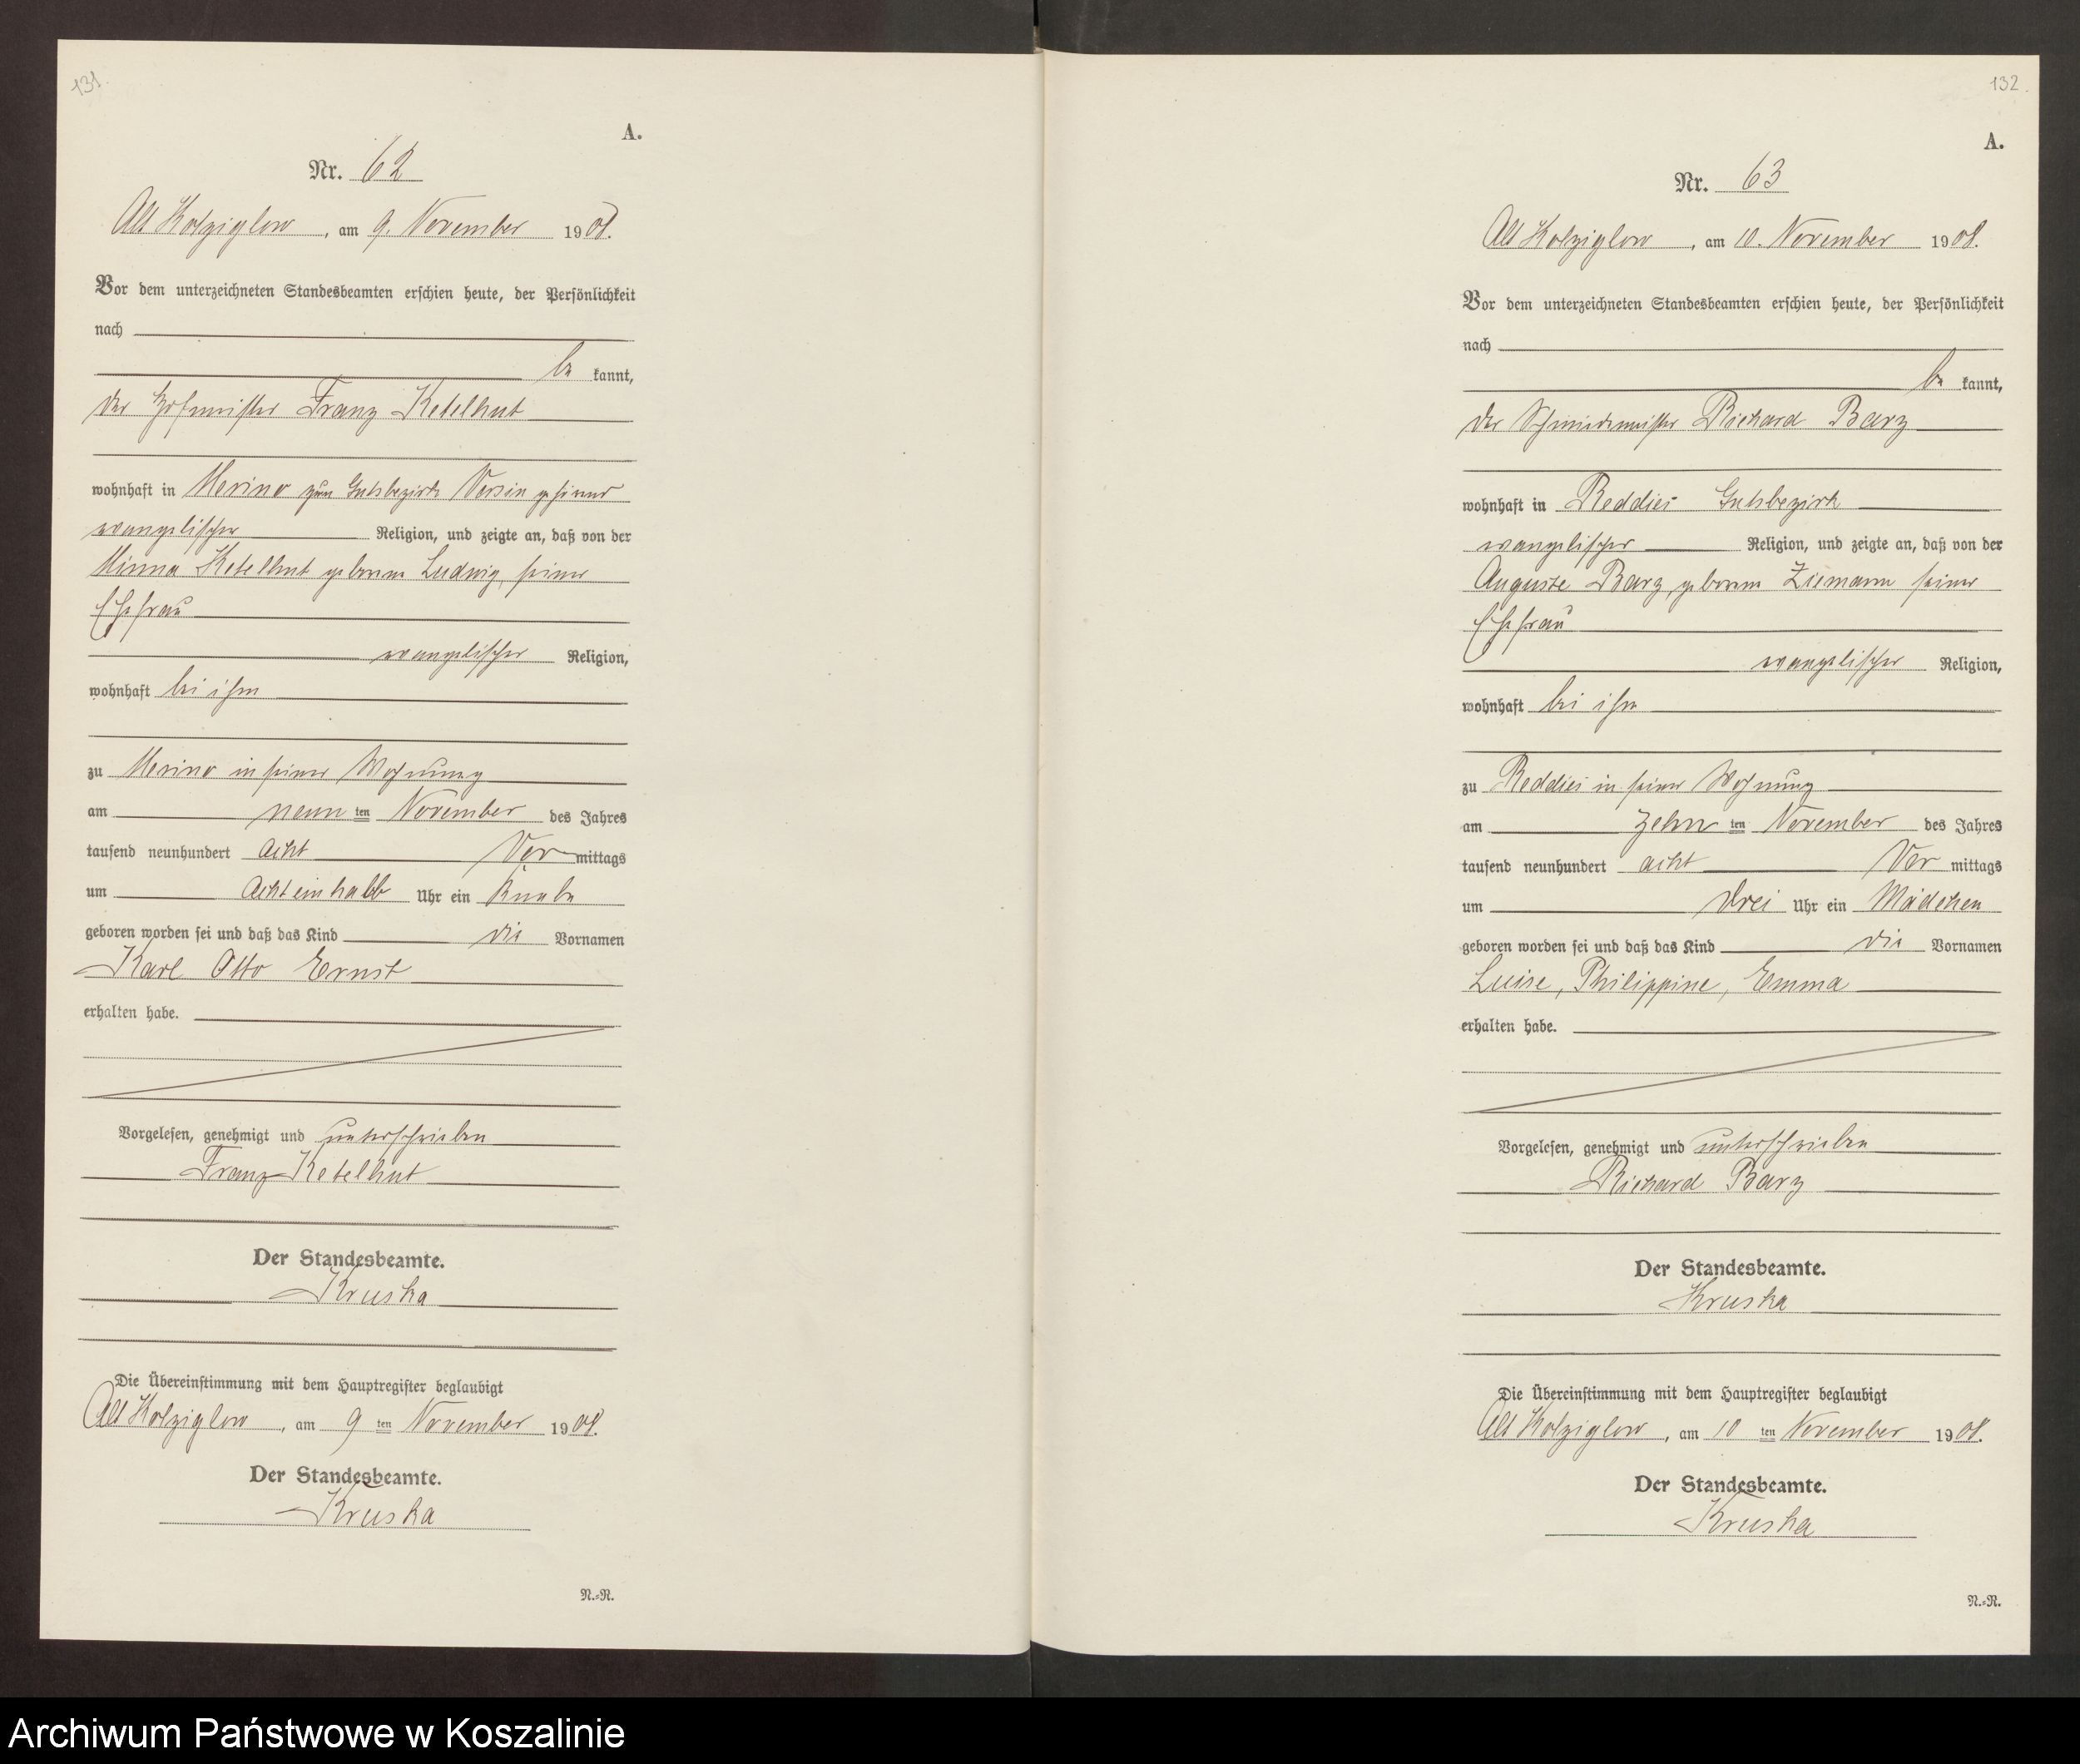 131.
A.
Nr. 62
Alt Kolziglow, am 9. November 1908.
Vor dem unterzeichneten Standesbeamten erschien heute, der Persönlichkeit
nach
be kannt,
der Hofmeister Franz Ketelhut
wohnhaft in Merino zum Gutsbezirk Versin gehörend
evangelischer Religion, und zeigte an, daß von der
Minna Ketelhut geborene Ludwig, seiner
Ehefrau
evangelischer Religion,
wohnhaft bei ihm
zu Merino in seiner Wohnung
am neun ten November des Jahres
tausend neunhundert acht Vor mittags
um achteinhalb Uhr ein Knabe
geboren worden sei und daß das Kind die Vornamen
Karl Otto Ernst
erhalten habe.
Vorgelesen, genehmigt und unterschrieben
Franz Ketelhut
Der Standesbeamte.
Kruska
Die Übereinstimmung mit dem Hauptregister beglaubigt
Alt Kolziglow, am 9 ten November 1908.
Der Standesbeamte.
Kruska
N.=R.
132.
A.
Nr. 63
Alt Kolziglow, am 10. November 1908.
Vor dem unterzeichneten Standesbeamten erschien heute, der Persönlichkeit
nach
be kannt,
der Schmiedemeister Richard Barz
wohnhaft in Reddies Gutsbezirk
evangelischer Religion, und zeigte an, daß von der
Auguste Barz, geborene Ziemann seiner
Ehefrau
evangelischer Religion,
wohnhaft bei ihm
zu Reddies in seiner Wohnung
am zehn ten November des Jahres
tausend neunhundert acht Vor mittags
um drei Uhr ein Mädchen
geboren worden sei und daß das Kind die Vornamen
Luise, Philippine, Emma
erhalten habe.
Vorgelesen, genehmigt und unterschrieben
Richard Barz
Der Standesbeamte.
Kruska
Die Übereinstimmung mit dem Hauptregister beglaubigt
Alt Kolziglow, am 10 ten November 1908.
Der Standesbeamte.
Kruska
N.=R.
Archiwum Państwowe w Koszalinie